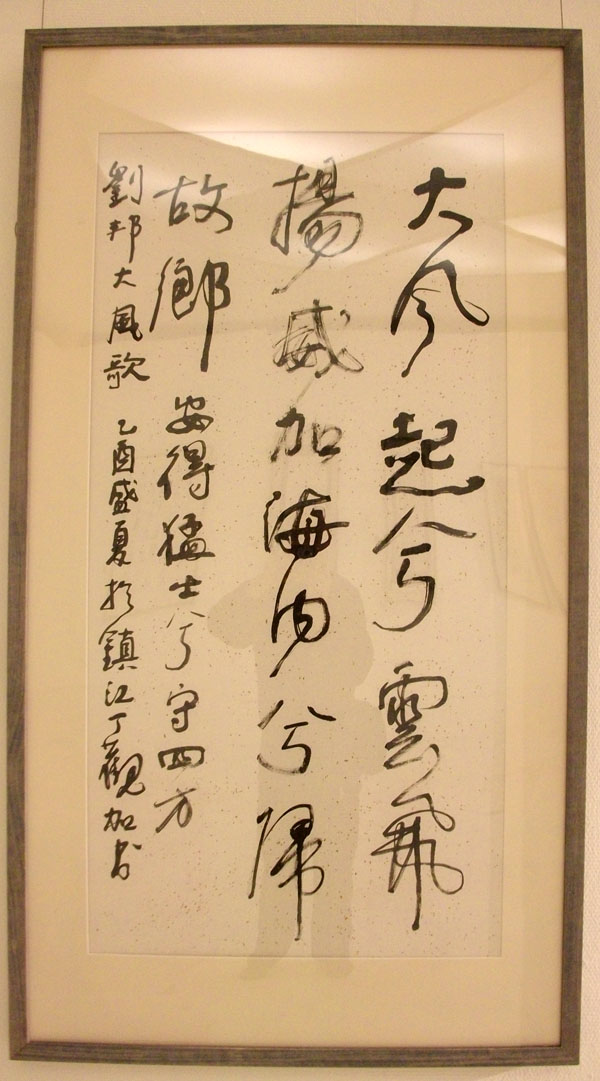 大风起兮雲飛
揚威加海内兮歸
故鄉安得猛士兮守四方
劉邦大風歌 乙酉盛夏於鎮江丁觀加书